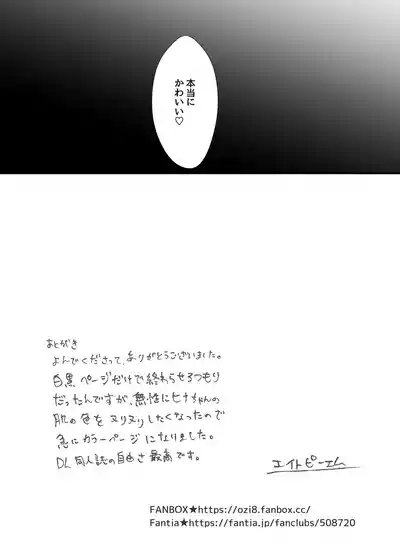 本当に
かわいい♡
あとがき
よんでくださって、ありがとうございました。
白黒ページだけで終わらせるつもり
だったんですが、無性にヒナちゃんの
肌の色をヌリヌリしたくなったので
急にカラーページになりました。
DL同人誌の自由さ最高です。
エイトピーエム
FANBOX★https://ozi8.fanbox.cc/
Fantia★https://fantia.jp/fanclubs/508720